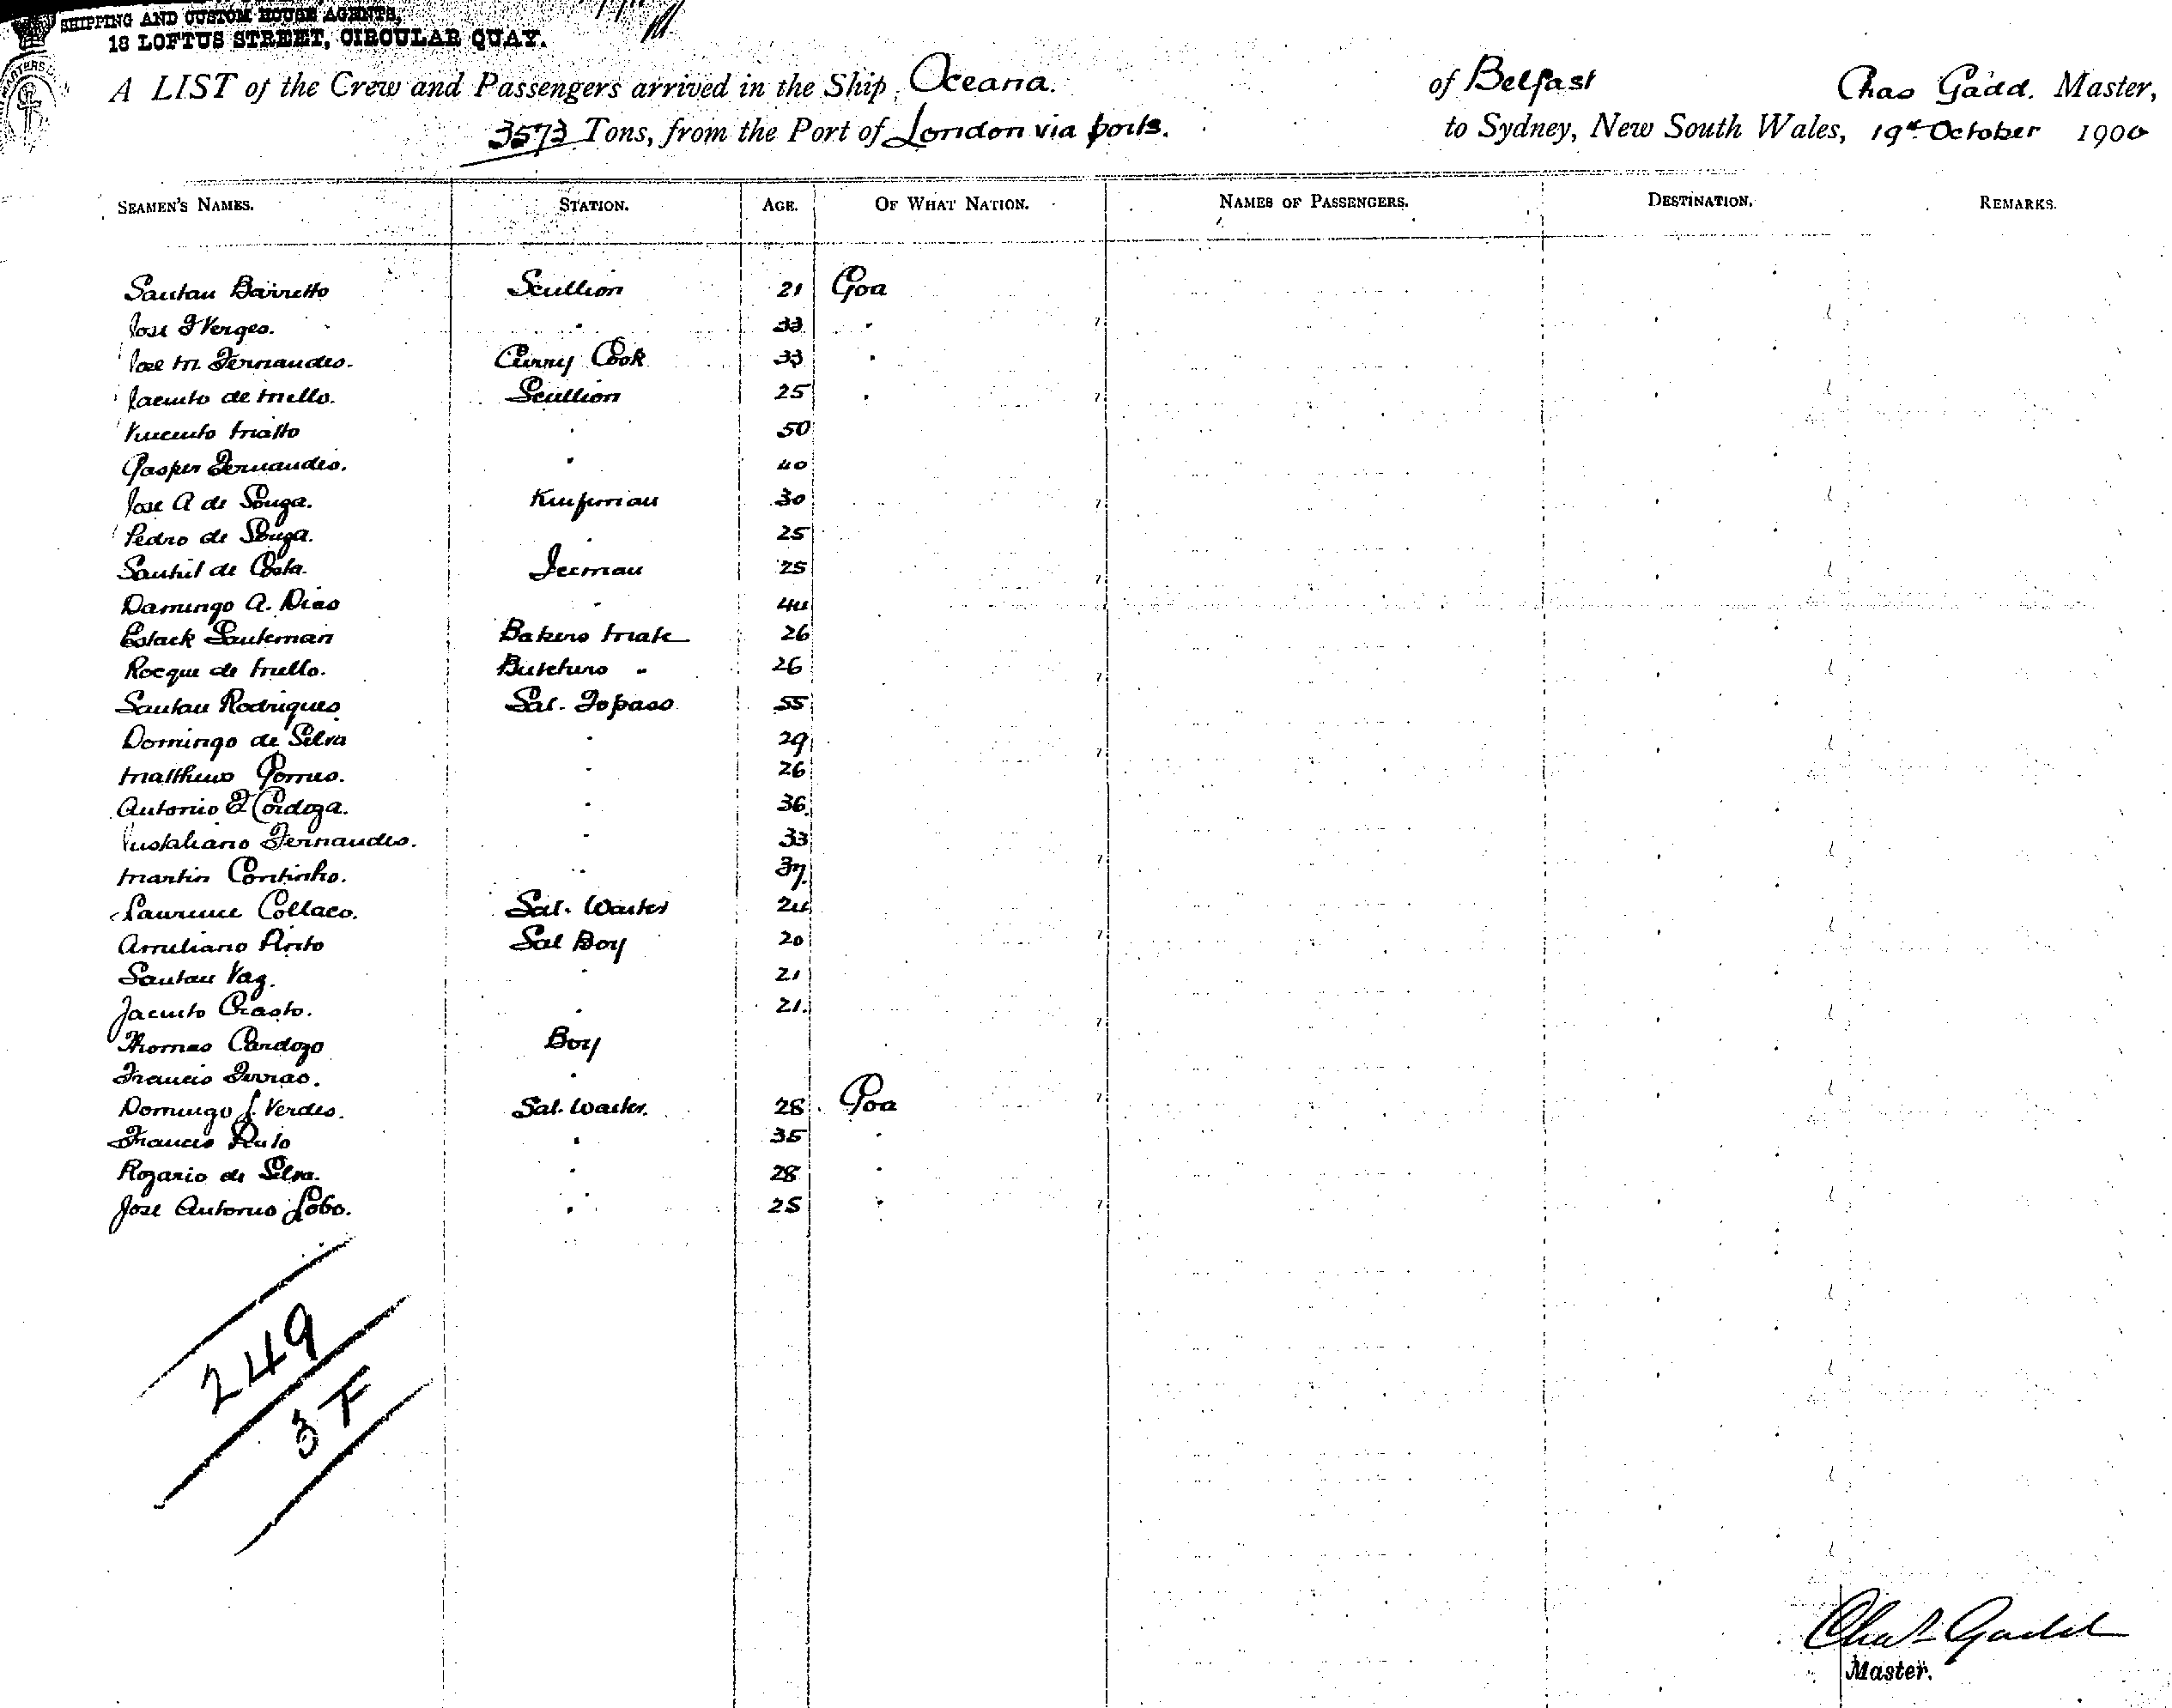 SHIPPING AND CUSTOM HOUSE AGENTS,
18 LOFTUS STREET, CIRCULAR QUAY.
A LIST of the Crew and Passengers arrived in the Ship, Oceana. of Belfast Chas Gadd. Master,
3573 Tons, from the Port of London via ports. to Sydney, New South Wales, 19th October 1900
SEAMEN'S NAMES. STATION. AGE. OF WHAT NATION. NAMES OF PASSENGERS. DESTINATION. REMARKS.
Santan Barretto Scullion 21 Goa
Jose F Verges. " 33 "
Jose M. Fernandes. Curry Cook 33 "
Jacinto de Mello. Scullion 25 "
Vincento Matto " 50
Gasper Fernandes. " 40
Jose A de Souza. 30
Pedro de Souza. " 25
de Costa. 25
Damingo A. Dias "
Bakers Mate 26
Rocque de Mello. Butchers " 26
Santan Rodrigues Sal. Topass 55
Domingo de Silva " 29
Matthews Gomes. " 26
Antonio F Cordoza. " 36
Fernandes. " 33
Martin Continho. " 37.
Laurence Collaco. Sal. Waiter 24
Pinto Sal Boy 20
Santan Vaz. " 21
Jacinto Crasto. " 21.
Thomas Cardozo Boy
Francis Ferrao. "
Domingo J. Verdes. Sal. Waiter. 28 Goa
Francis Pinto " 35 "
Rozario de Silva. " 28 "
Jose Antonio Lobo. " 25 "
249
3 F
Chas Gadd
Master.